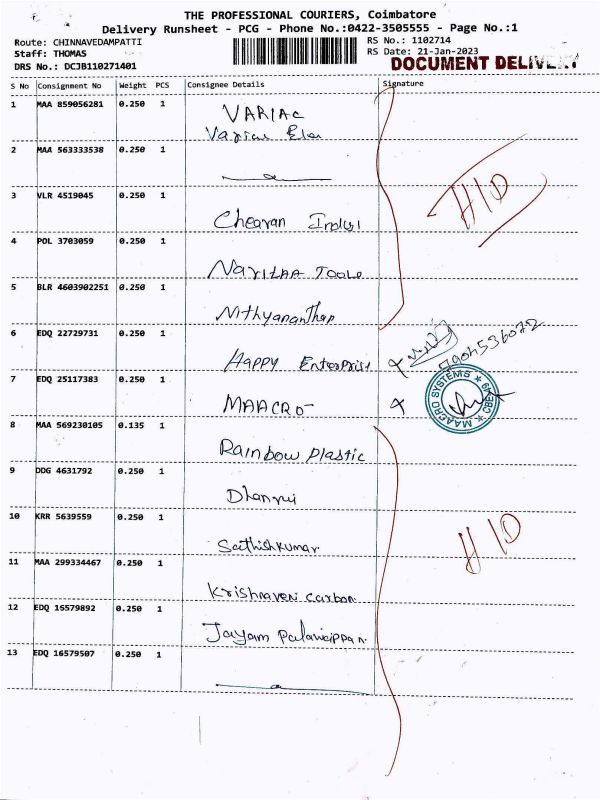 THE PROFESSIONAL COURIERS, Coimbatore
Delivery Runsheet - PCG - Phone No.:0422-3505555 - Page No.:1
Route: CHINNAVEDAMPATTI
RS No.: 1102714
Staff: THOMAS
RS Date: 21-Jan-2023
DRS No.: DCJB110271401
DOCUMENT DELIVERY
S No Consignment No Weight PCS Consignee Details Signature
1 MAA 859056281 0.250 1 VARIAC
2 MAA 563333538 0.250 1
3 VLR 4519045 0.250 1 Chearan
H/D
4 POL 3703059 0.250 1
5 BLR 4603902251 0.250 1 Nithyananthan
6 EDQ 22729731 0.250 1 Happy Enterprise
7904536072
7 EDQ 25117383 0.250 1 MAACRO
MAACRO SYSTEMS ★ CBE
8 MAA 569230105 0.135 1 Rainbow Plastic
9 DDG 4631792 0.250 1
10 KRR 5639559 0.250 1 Sathishkumar
H/D
11 MAA 299334467 0.250 1 Krishnaveni Carbon
12 EDQ 16579892 0.250 1 Jayam Palaniappan
13 EDQ 16579507 0.250 1